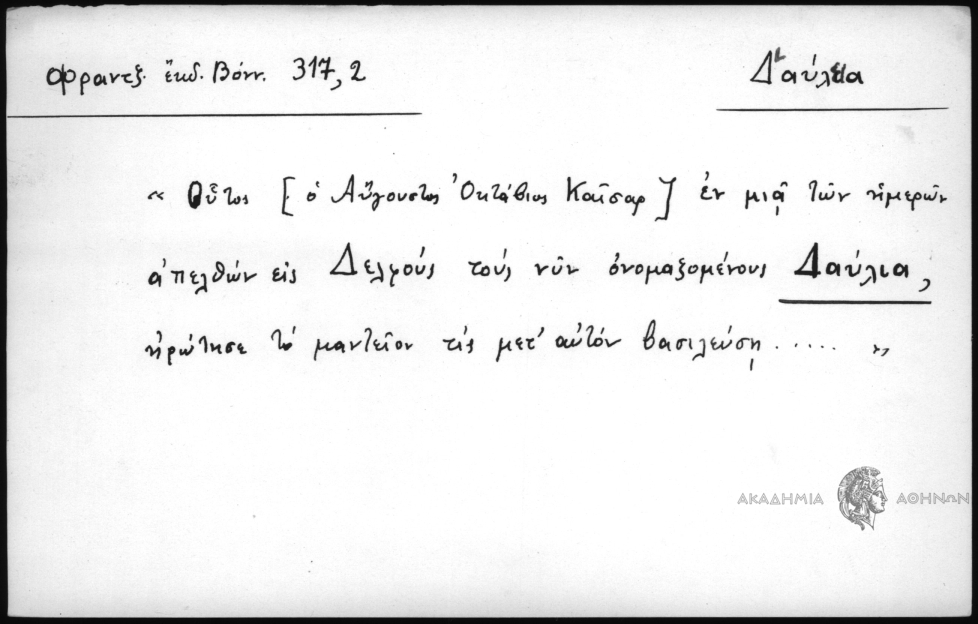 Φραντζ. ἔκδ. Βόνν. 317,2
Δαύλια
« Οὗτος [ὁ Αὔγουστος Ὀκτάβιος Καῖσαρ] ἐν μιᾷ τῶν ἡμερῶν
ἀπελθὼν εἰς Δελφούς τούς νῦν ὀνομαζομένους Δαύλια,
ἠρώτησε τὸ μαντεῖον τίς μετ' αὐτόν βασιλεύσῃ ..... »
ΑΚΑΔΗΜΙΑ ΑΘΗΝΩΝ